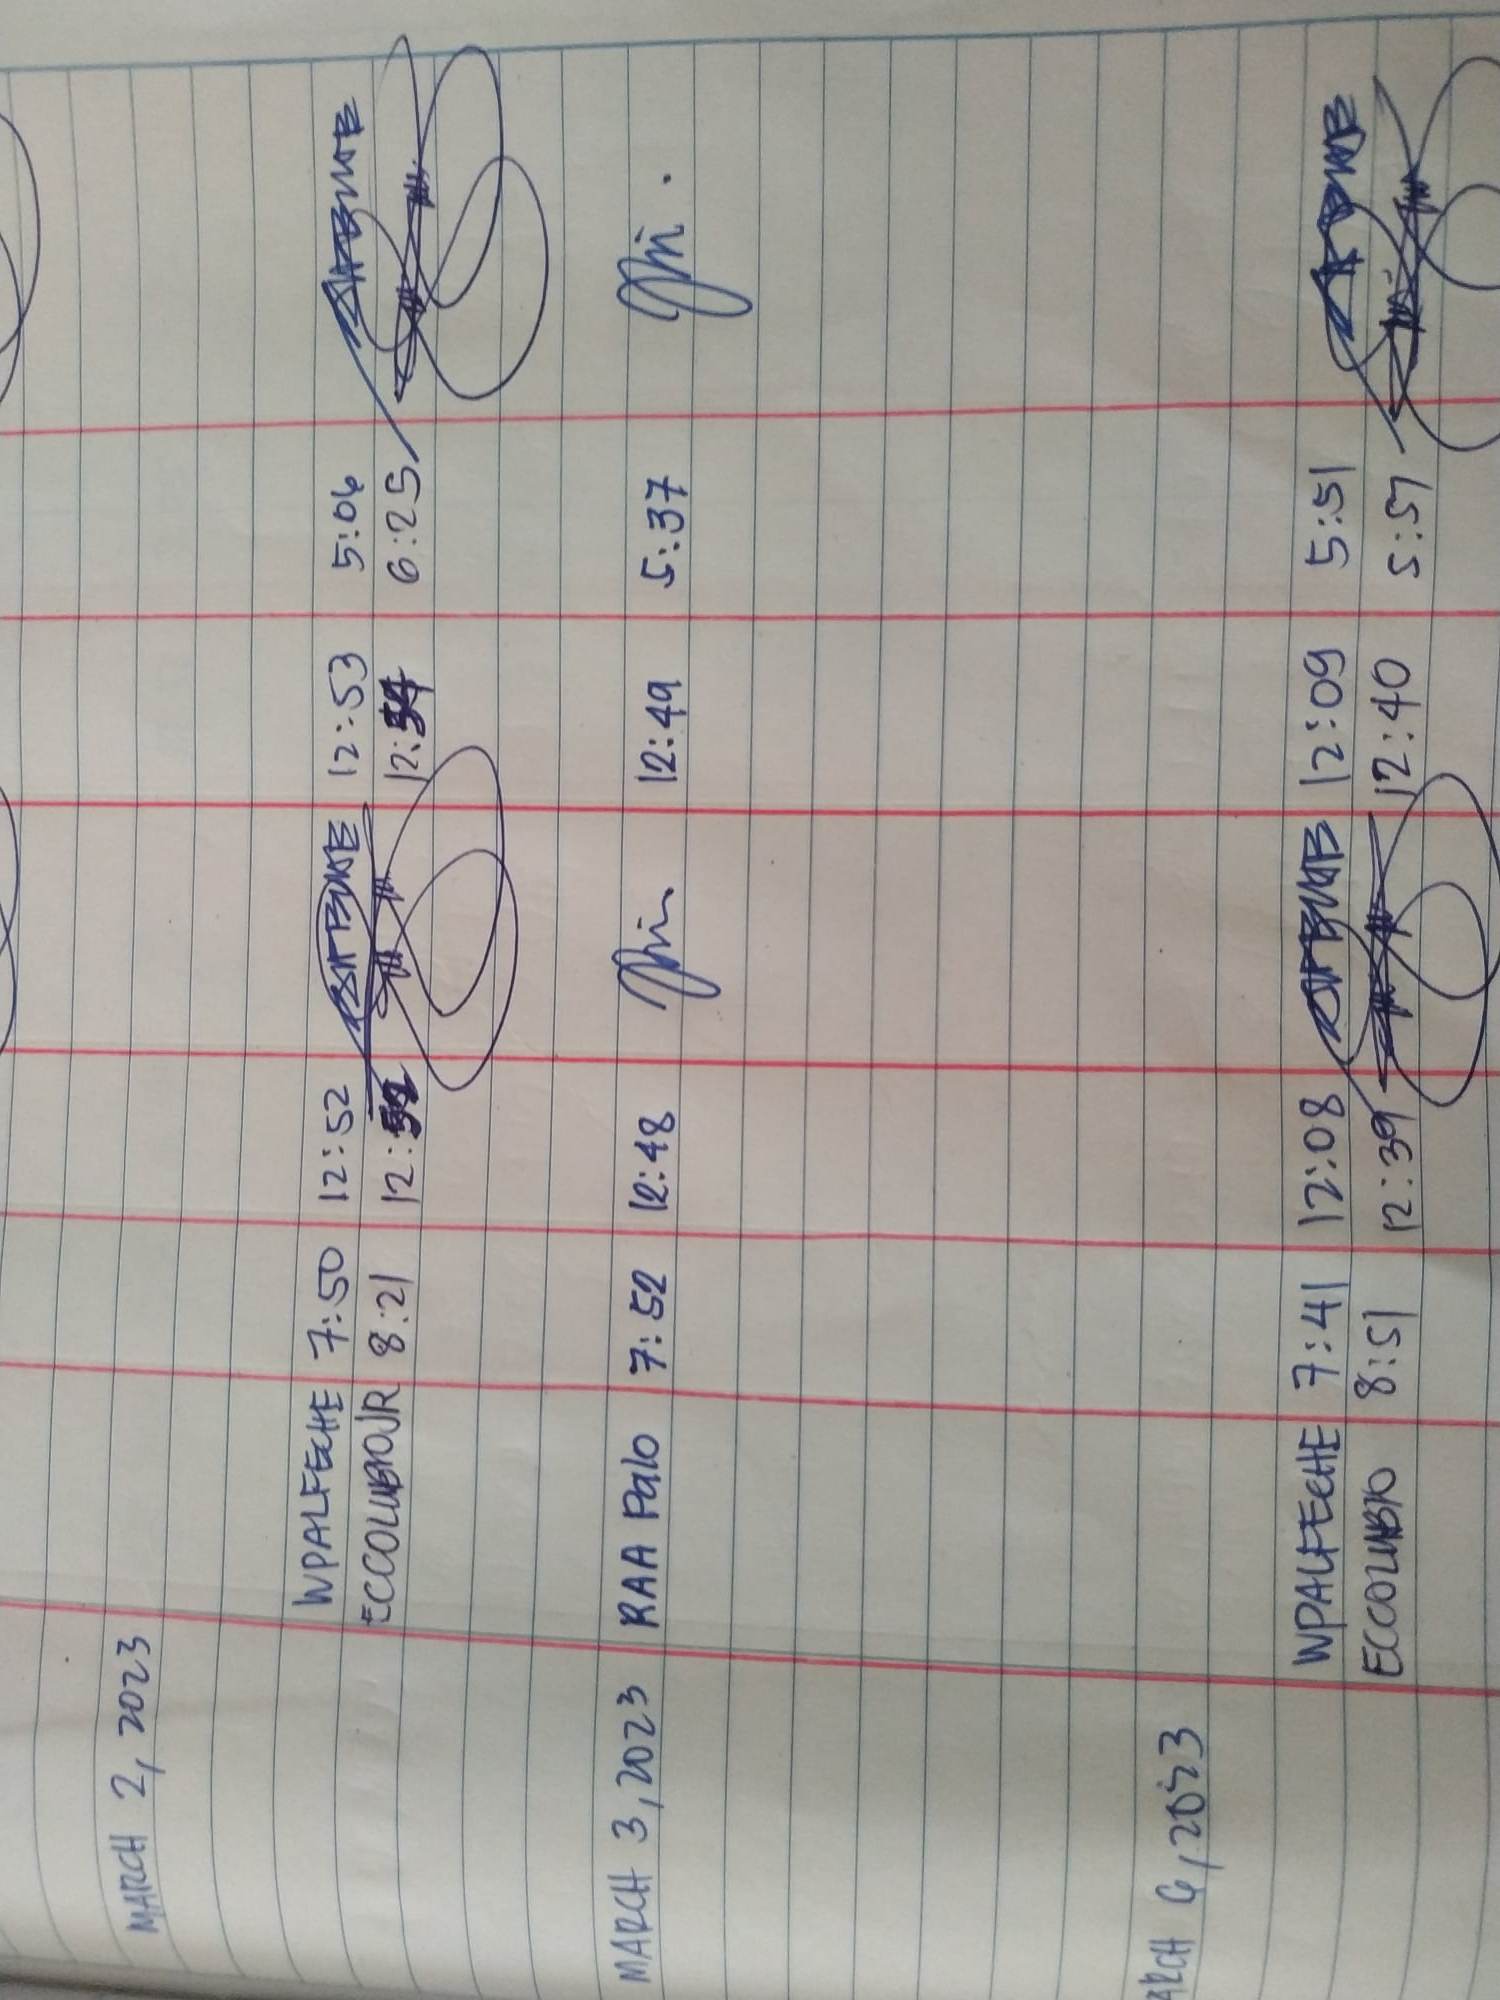 MARCH 2, 2023
WPALFECHE 7:50 12:52 12:53 5:06
ECCOLUMBIOJR 8:21 12: 12: 6:25
MARCH 3, 2023 RAA Palo 7:52 12:48 12:49 5:37
ARCH 6, 2023
WPALFECHE 7:41 12:08 12:09 5:51
ECCOLUMBIO 8:51 12:39 12:40 5:57